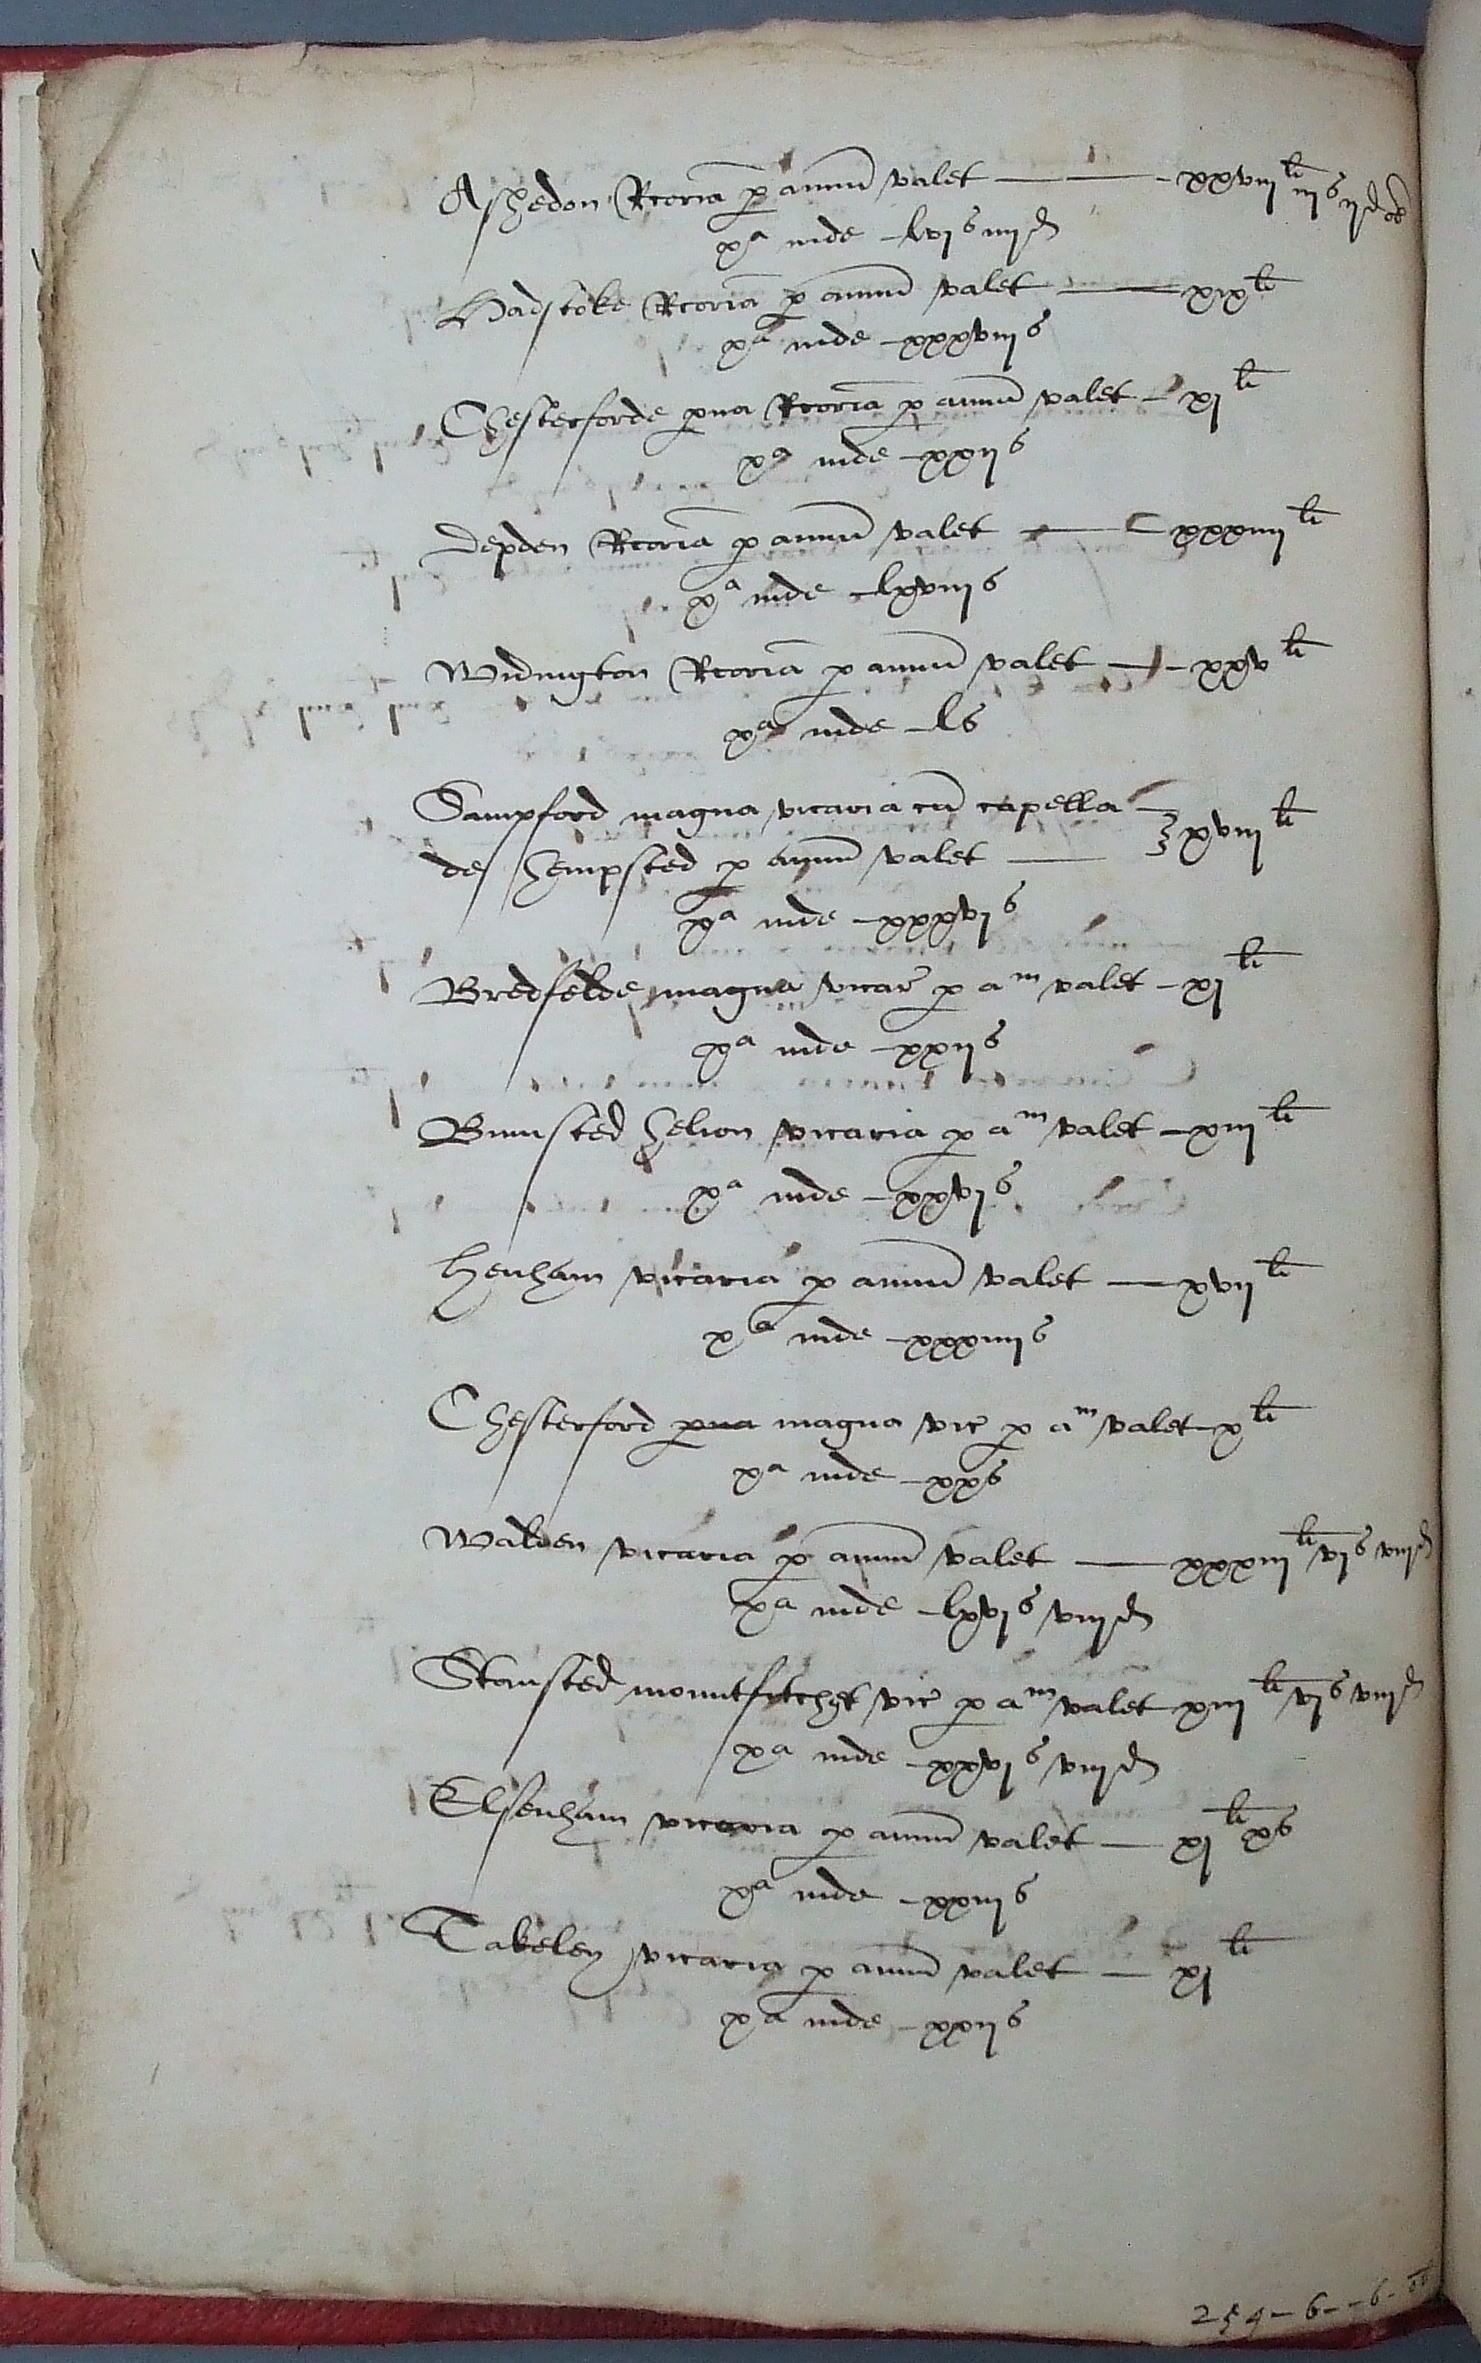 Ashedon Rcoria p annu valet — xxviij li iijs ijd ob
xa inde - lvjs iiijd
Hadstoke Rcoria p annu valet — xix li
xa inde - xxxviijs
Chesterforde pva Rcoria p annu valet - xj li
xa inde - xxijs
Depden Rcoria p annu valet — xxxiiij li
xa inde - lxviijs
Widington Rcoria p annu valet — xxv li
xa inde - ls
Sampford magna vicaria cu capella
de hempsted p annu valet — xviij li
xa inde - xxxvjs
Bredfelde magna vicar p am valet - xj li
xa inde - xxijs
Bumsted helion vicaria p am valet - xiij li
xa inde - xxvjs
henham vicaria p annu valet — xvij li
xa inde - xxxiiijs
Chesterford pva magna vic p am valet - x li
xa inde - xxs
Walden vicaria p annu valet — xxxiij li vjs viijd
xa inde - lxvjs viijd
Stansted mountfitchet vic p am valet xiij li vjs viijd
xa inde - xxvjs viijd
Elsenham vicaria p annu valet — xj li xs
xa inde - xxiijs
Takeley vicaria p annu valet — xj li
xa inde - xxijs
254 - 6 - - 6 -